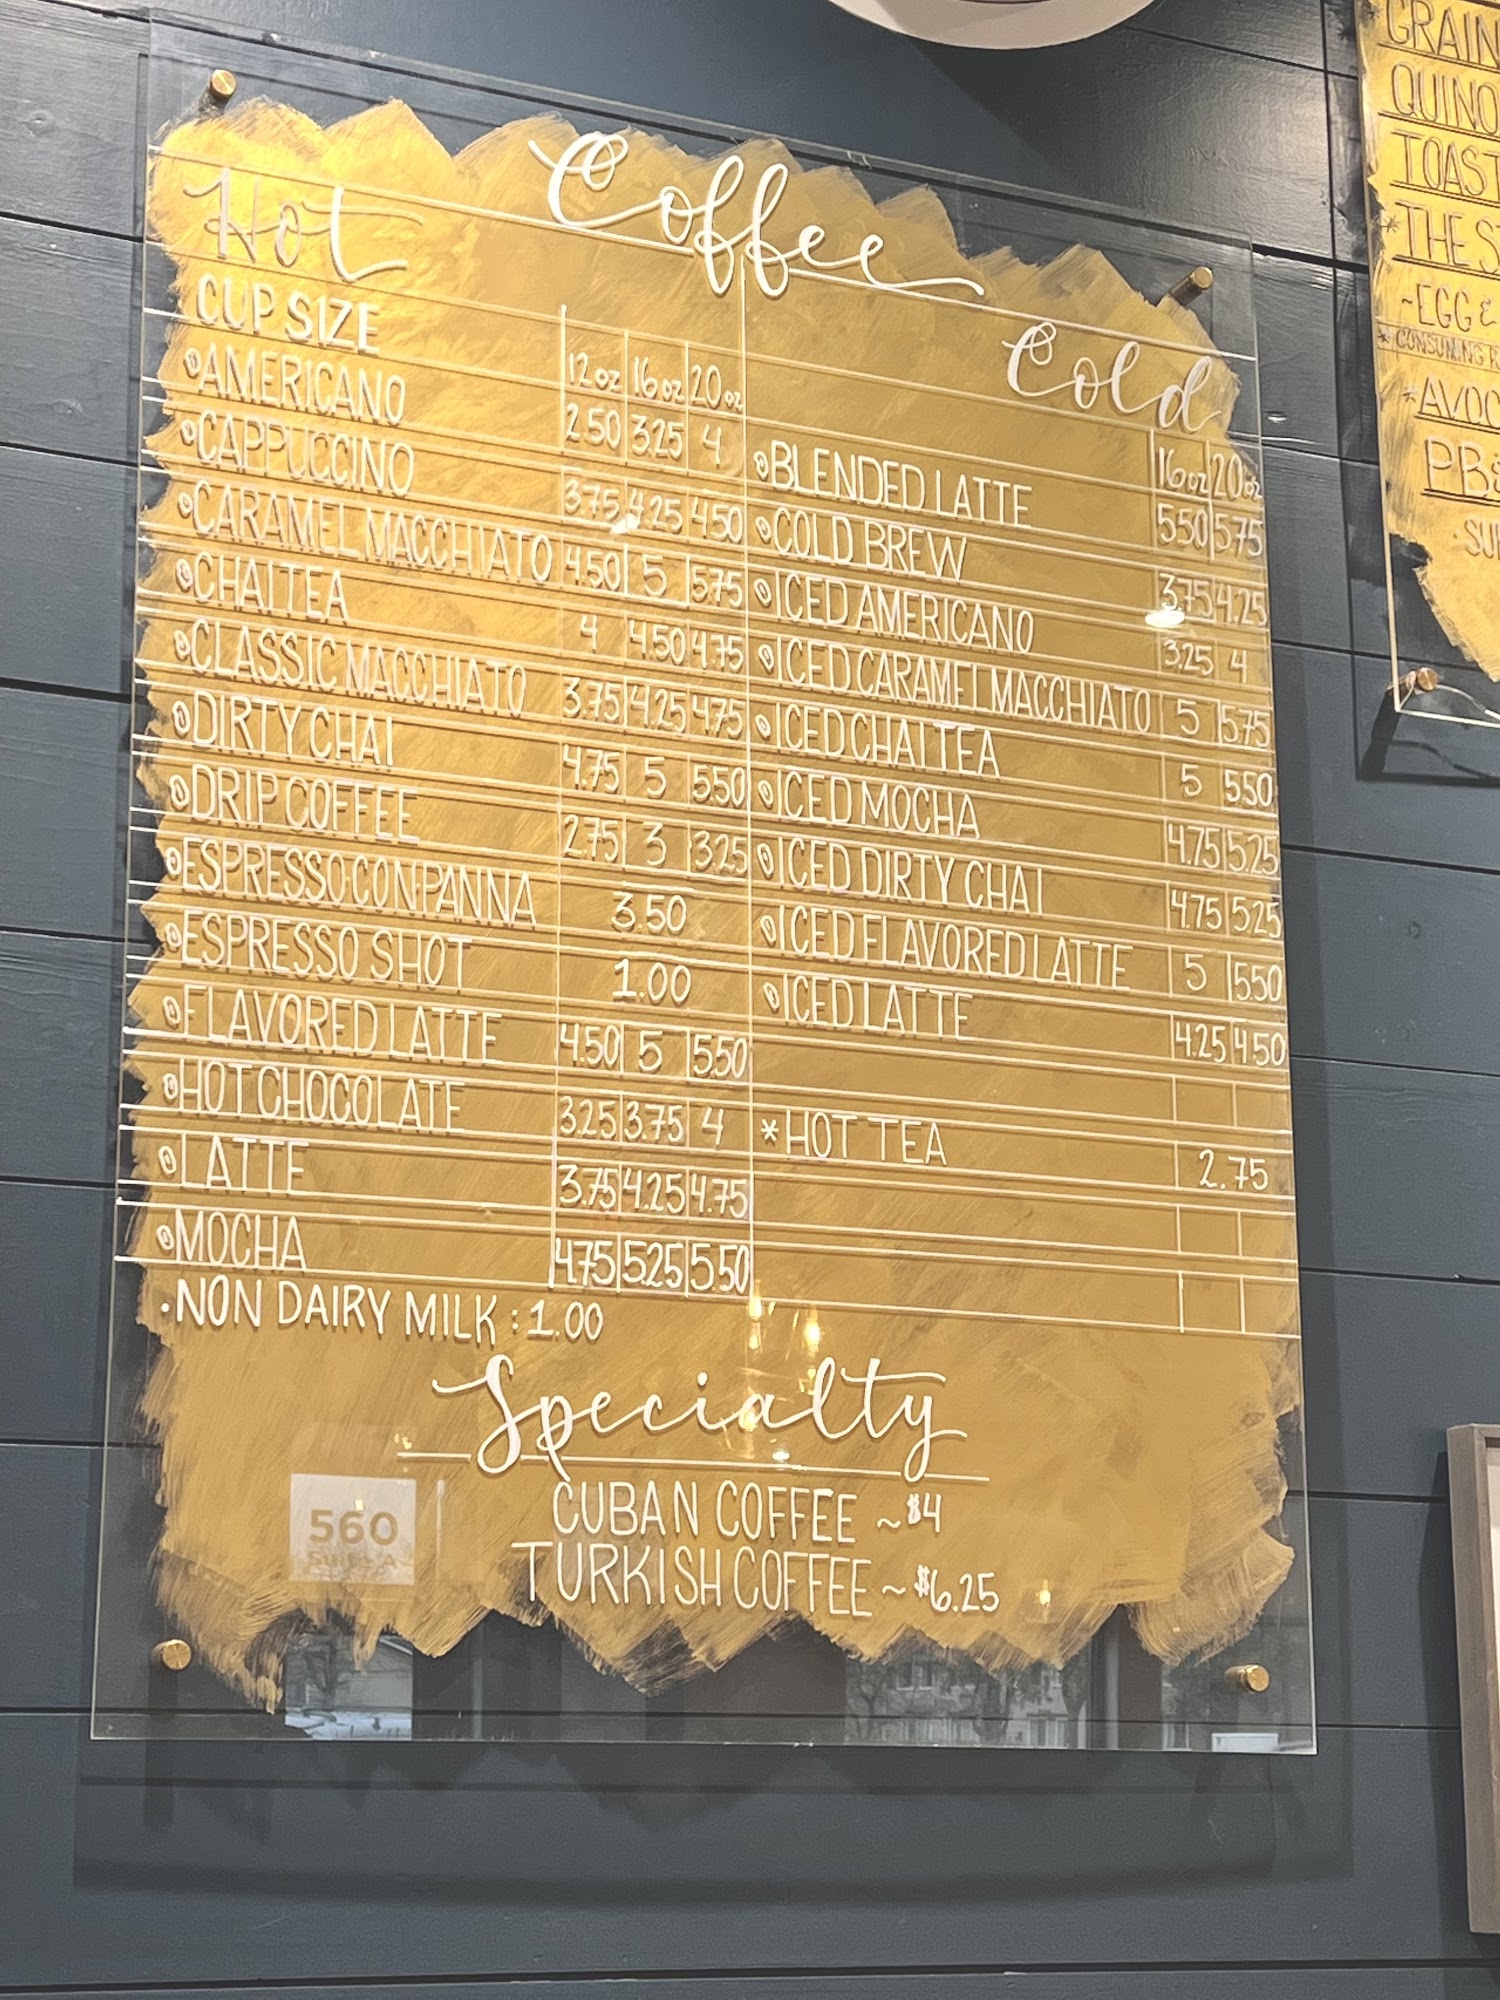 Coffee
Hot
CUP SIZE 12oz 16oz 20oz
AMERICANO 2.50 3.25 4
CAPPUCCINO 3.75 4.25 4.50
CARAMEL MACCHIATO 4.50 5 5.75
CHAI TEA 4 4.50 4.75
CLASSIC MACCHIATO 3.75 4.25 4.75
DIRTY CHAI 4.75 5 5.50
DRIP COFFEE 2.75 3 3.25
ESPRESSO CON PANNA 3.50
ESPRESSO SHOT 1.00
FLAVORED LATTE 4.50 5 5.50
HOT CHOCOLATE 3.25 3.75 4
LATTE 3.75 4.25 4.75
MOCHA 4.75 5.25 5.50
·NON DAIRY MILK : 1.00
Cold
16oz 20oz
BLENDED LATTE 5.50 5.75
COLD BREW 3.75 4.25
ICED AMERICANO 3.25 4
ICED CARAMEL MACCHIATO 5 5.75
ICED CHAI TEA 5 5.50
ICED MOCHA 4.75 5.25
ICED DIRTY CHAI 4.75 5.25
ICED FLAVORED LATTE 5 5.50
ICED LATTE 4.25 4.50
*HOT TEA 2.75
Specialty
CUBAN COFFEE ~ $4
TURKISH COFFEE ~ $6.25
560
Suite A
GRAIN
QUINO
TOAST
*THE S
~EGG &
* CONSUMING
*AVOC
PB&